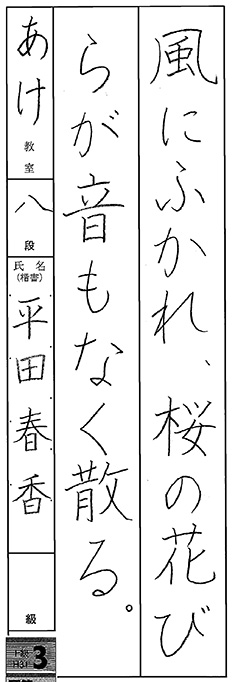 風にふかれ、桜の花び
らが音もなく散る。
あけ教室
八段
氏名
(楷書)
平田春香
級
3